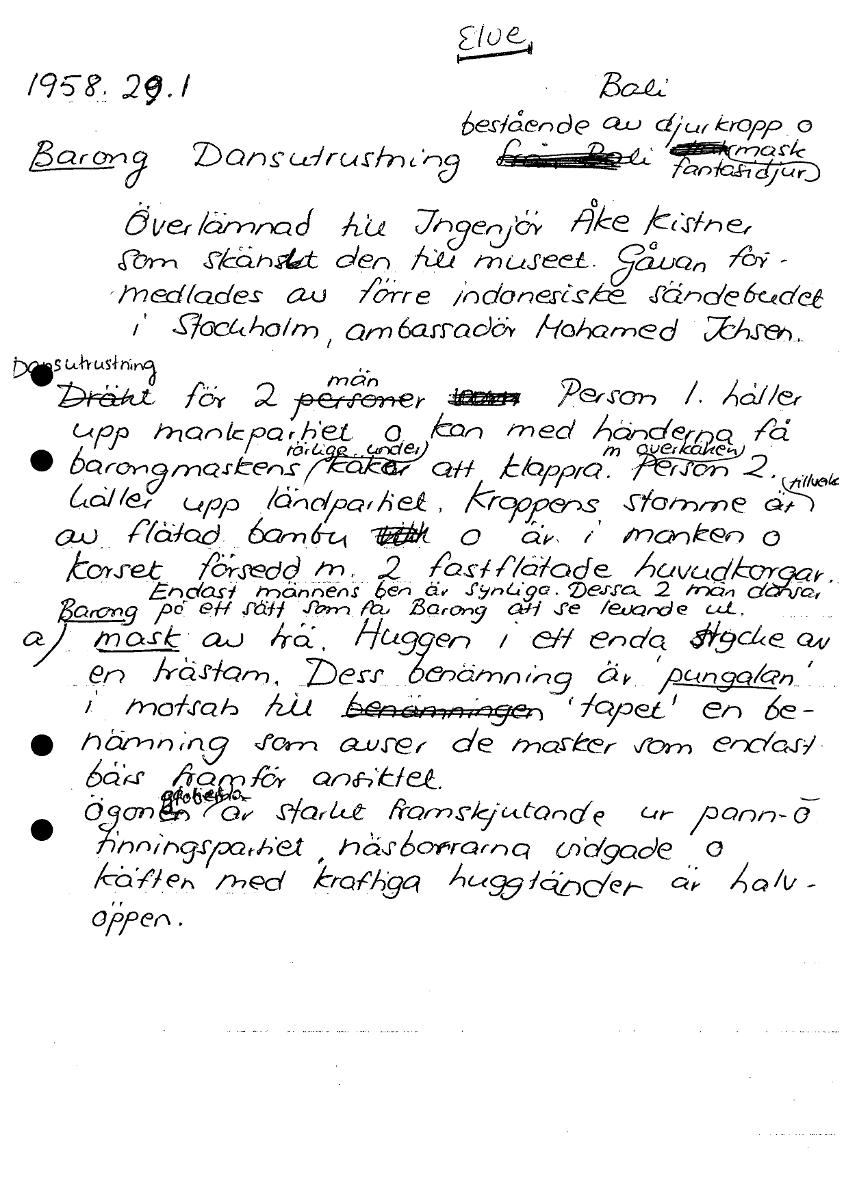 Elve
1958. 29.1 Bali
bestående av djurkropp o
Barong Dansutrustning från Bali mask
fantasidjur
Överlämnad till Ingenjör Åke Kistner
som skänkt den till museet. Gåvan för-
medlades av förre indonesiske sändebudet
i Stockholm, ambassadör Mohamed Ichsen.
Dansutrustning
män
Dräkt för 2 personer Person 1. håller
upp mankpartiet o kan med händerna få
rörliga under m överkäken
barongmaskens käkar att klappra. Person 2.
tillverk
håller upp ländpartiet. Kroppens stomme är
av flätad bambu o är i manken o
korset försedd m. 2 fastflätade huvudkorgar.
Endast männens ben är synliga. Dessa 2 män dansar
Barong på ett sätt som får Barong att se levande ut.
a) mask av trä. Huggen i ett enda stycke av
en trästam. Dess benämning är 'pungalan'
i motsats till benämningen 'tapel' en be-
nämning som avser de masker som endast
bärs framför ansiktet.
Ögonen är starkt framskjutande ur pann- o
tinningspartiet, näsborrarna vidgade o
käften med kraftiga huggtänder är halv-
öppen.